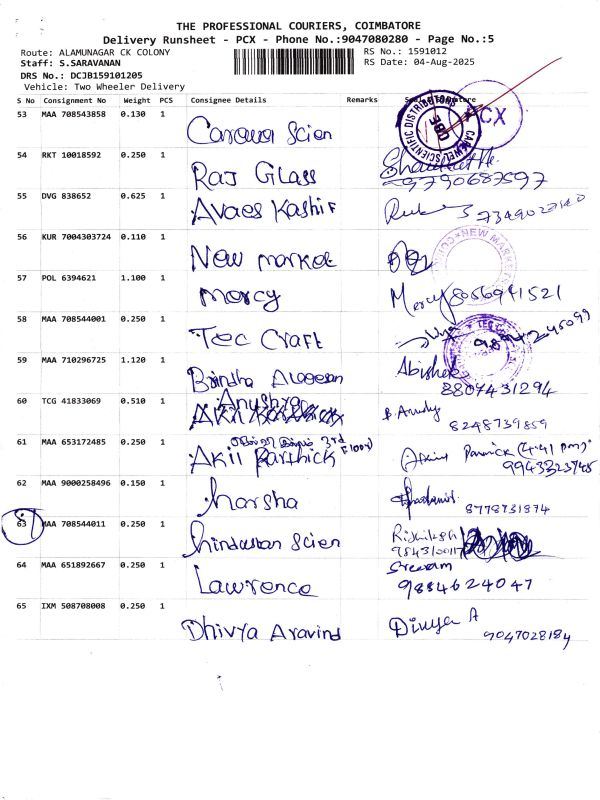 THE PROFESSIONAL COURIERS, COIMBATORE
Delivery Runsheet - PCX - Phone No.:9047080280 - Page No.:5
Route: ALAMUNAGAR CK COLONY
RS No.: 1591012
Staff: S.SARAVANAN
RS Date: 04-Aug-2025
DRS No.: DCJB159101205
Vehicle: Two Wheeler Delivery
S No Consignment No Weight PCS Consignee Details Remarks
53 MAA 708543858 0.130 1 Scien
PCX
54 RKT 10018592 0.250 1 Raj Glass
9790687597
55 DVG 838652 0.625 1 Avaes Kashif
56 KUR 7004303724 0.110 1 New market
NEW MARKET
57 POL 6394621 1.100 1 mercy Mercy 8056941521
58 MAA 708544001 0.250 1 Tec Craft
59 MAA 710296725 1.120 1 Brindha Abishek
8807431294
60 TCG 41833069 0.510 1 Anushya
8248739859
61 MAA 653172485 0.250 1 Akil Karthick 3rd Floor (4.41 pm)
9943323745
62 MAA 9000258496 0.150 1 harsha
8778731874
63 MAA 708544011 0.250 1 hindustan Scien
64 MAA 651892667 0.250 1 Lawrence Sreeram
9884624047
65 IXM 508708008 0.250 1 Dhivya Aravind Divya A
9047028184